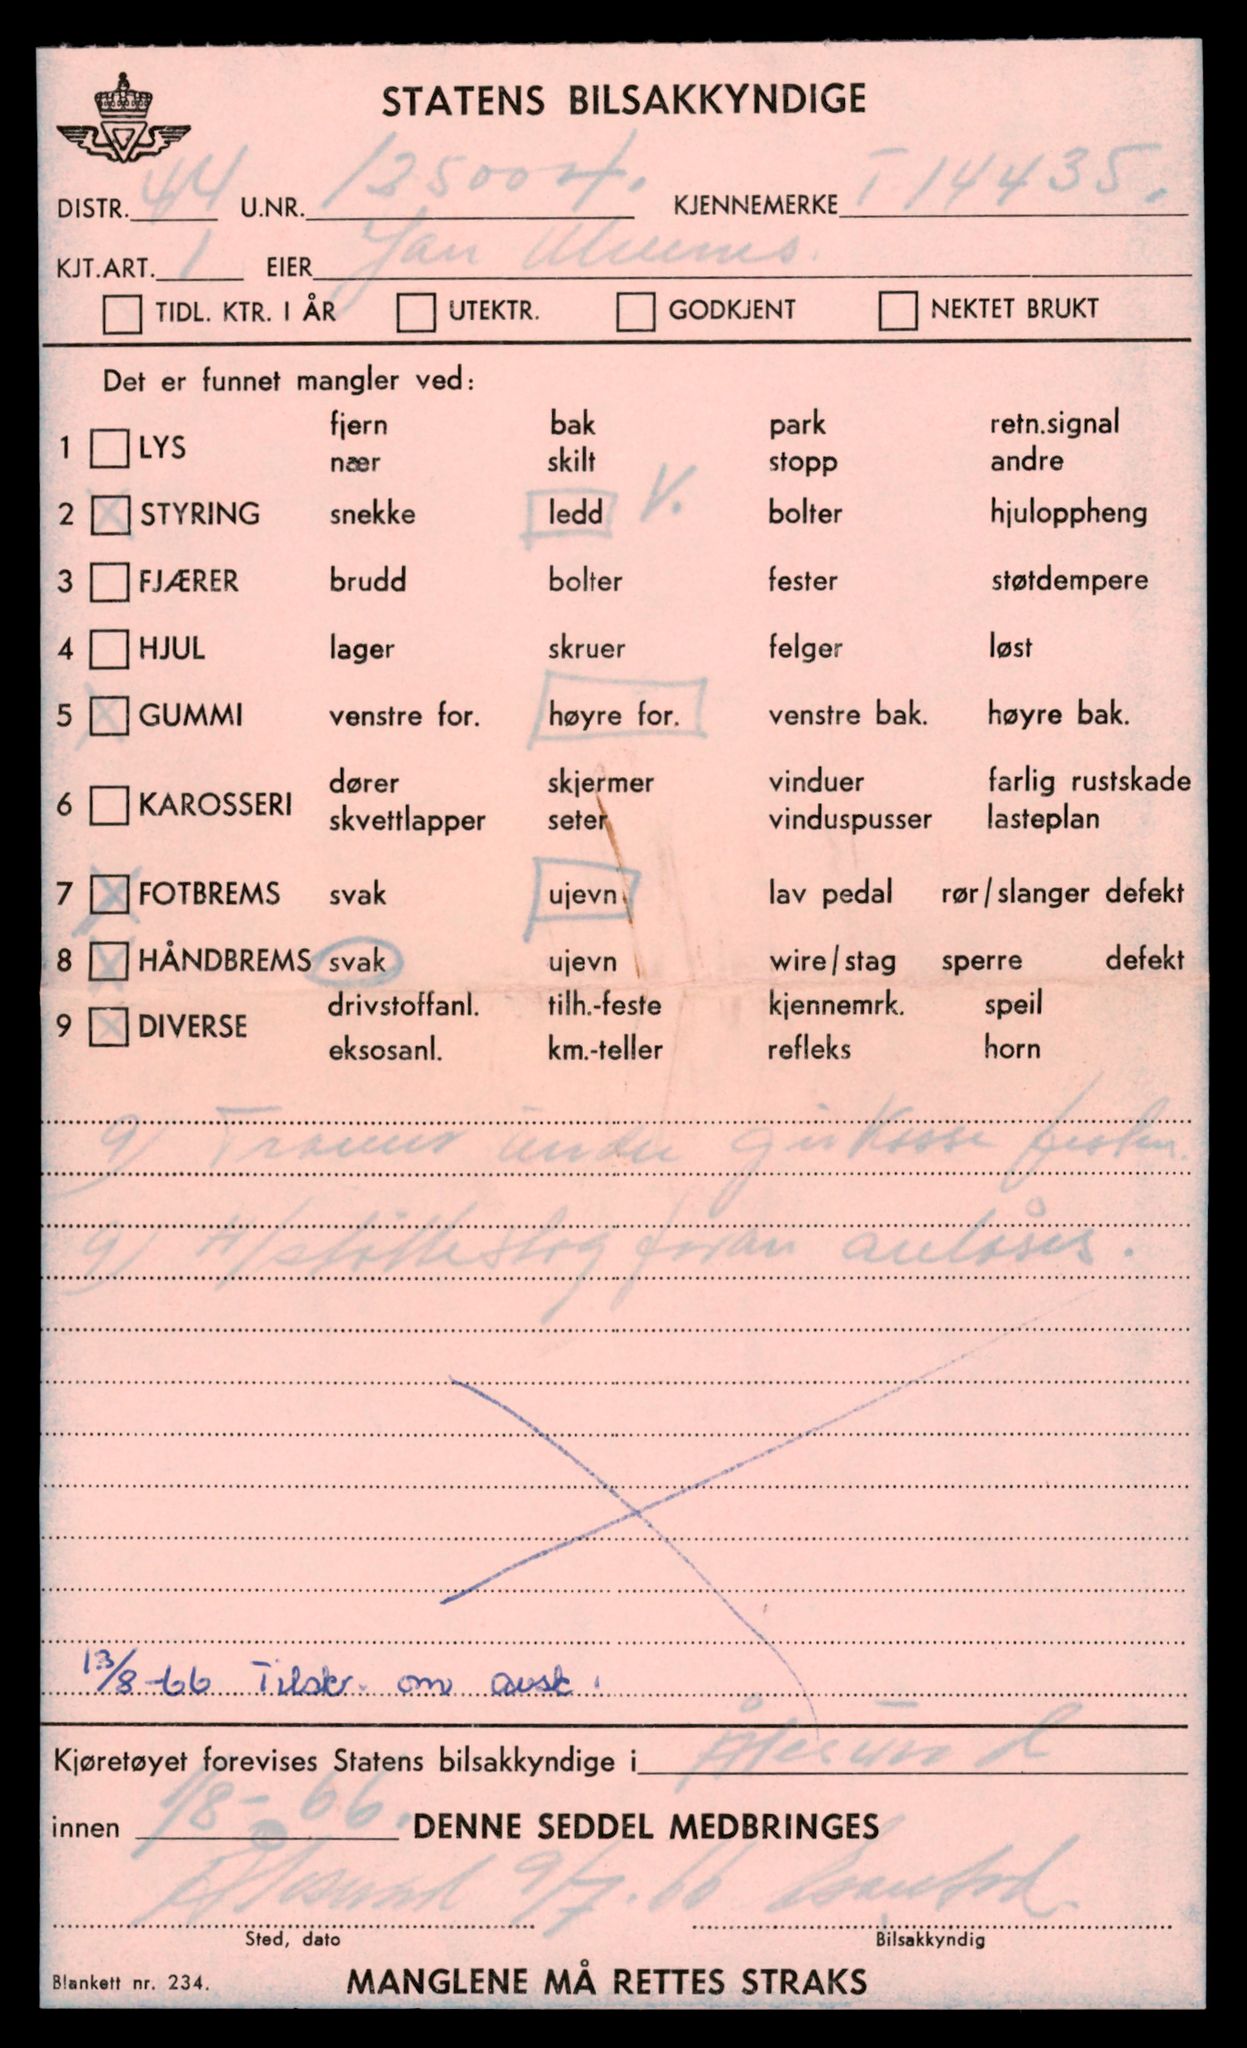 STATENS BILSAKKYNDIGE
DISTR. 44 U.NR. 125004. KJENNEMERKE T 14435.
KJT.ART. 1 EIER Jan
TIDL. KTR. I ÅR UTEKTR. GODKJENT NEKTET BRUKT
Det er funnet mangler ved:
fjern bak park retn.signal
1 LYS
nær skilt stopp andre
2 STYRING snekke ledd V. bolter hjuloppheng
3 FJÆRER brudd bolter fester støtdempere
4 HJUL lager skruer felger løst
5 GUMMI venstre for. høyre for. venstre bak. høyre bak.
dører skjermer vinduer farlig rustskade
6 KAROSSERI
skvettlapper seter vinduspusser lasteplan
7 FOTBREMS svak ujevn lav pedal rør/slanger defekt
8 HÅNDBREMS svak ujevn wire/stag sperre defekt
drivstoffanl. tilh.-feste kjennemrk. speil
9 DIVERSE
eksosanl. km.-teller refleks horn
9) under girkasse
9) foran
13/8-66 Tilskr. om avsk.
Kjøretøyet forevises Statens bilsakkyndige i Ålesund
innen 1/8-66. DENNE SEDDEL MEDBRINGES
Ålesund 9/7.66
Sted, dato Bilsakkyndig
Blankett nr. 234. MANGLENE MÅ RETTES STRAKS